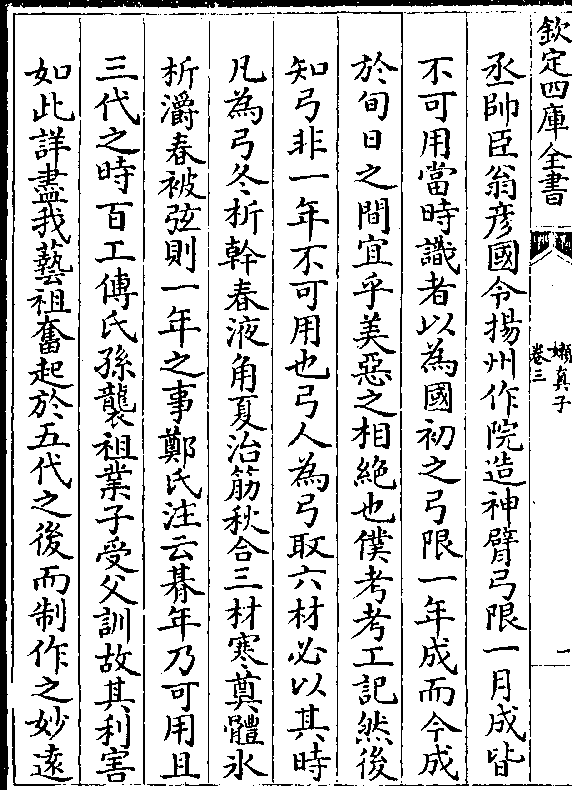 欽定四庫全書
嬾真子
卷三
一
丞帥臣翁彦國令揚州作院造神臂弓限一月成皆
不可用當時識者以為國初之弓限一年成而今成
於旬日之間宜乎美惡之相絶也僕考考工記然後
知弓非一年不可用也弓人為弓取六材必以其時
凡為弓冬析幹春液角夏治筋秋合三材寒奠體冰
析灂春被弦則一年之事鄭氏注云朞年乃可用且
三代之時百工傳氏孫襲祖業子受父訓故其利害
如此詳盡我藝祖奮起於五代之後而制作之妙逺